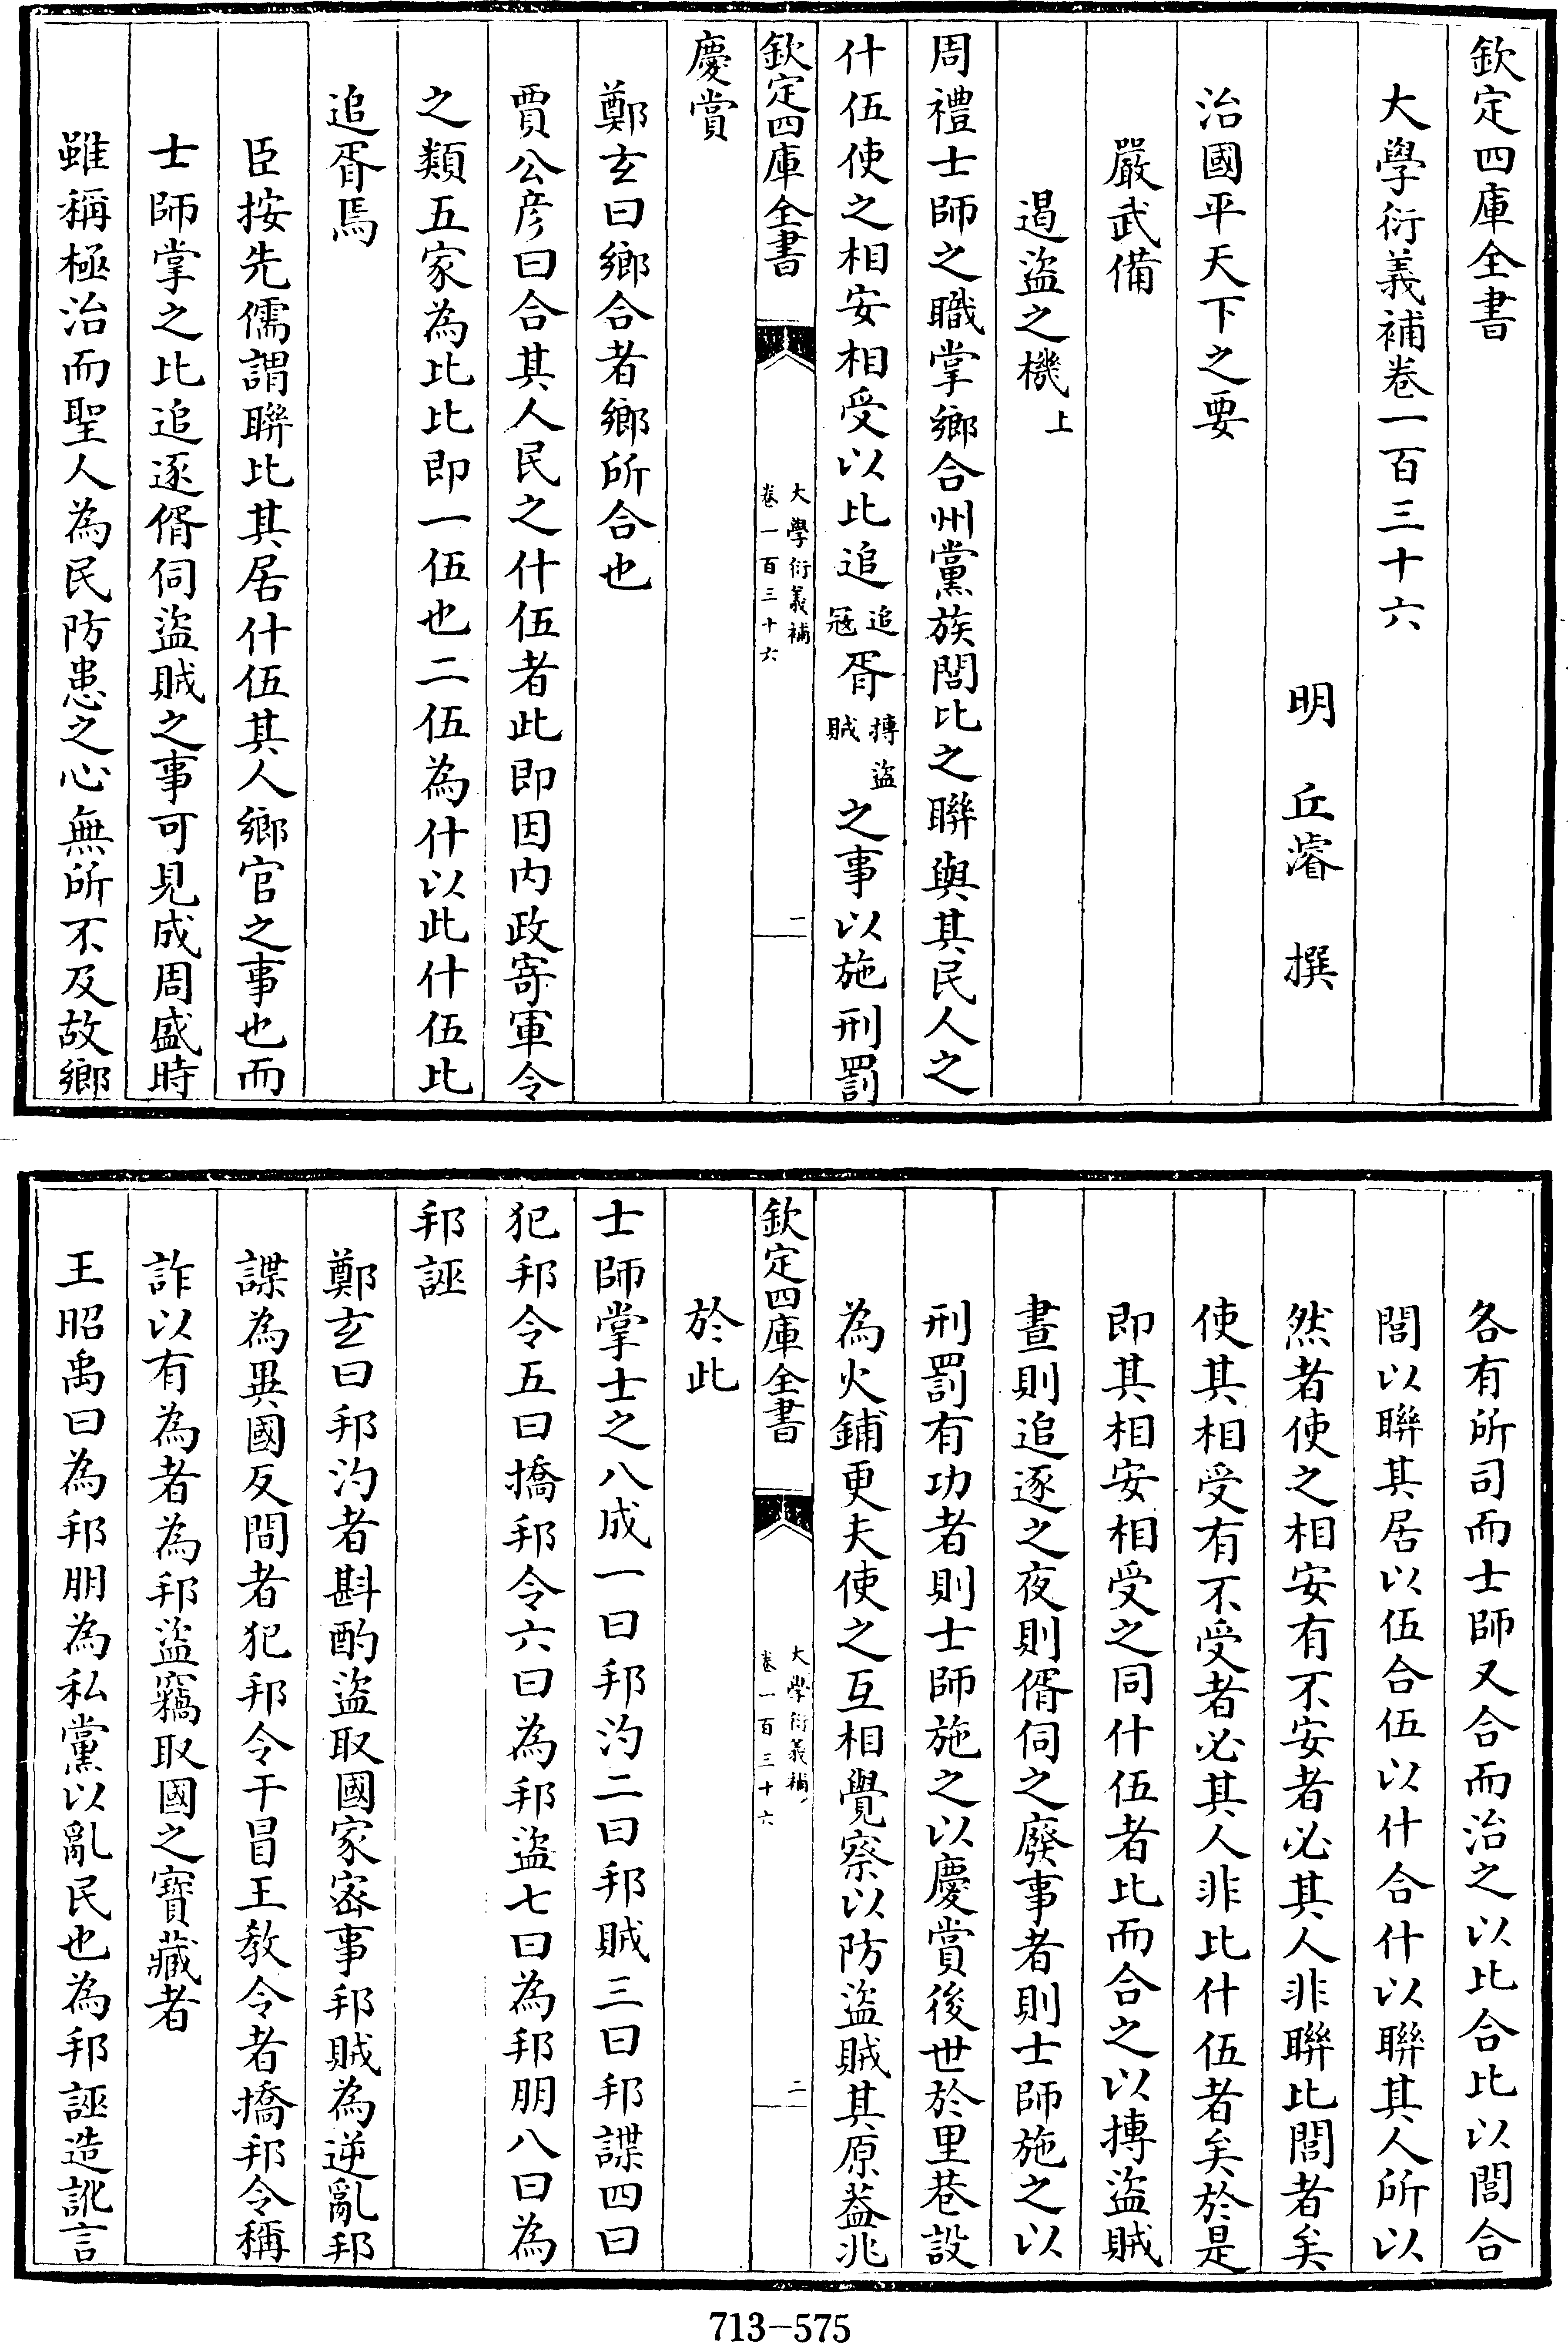 欽定四庫全書
大學衍義補卷一百三十六
明　丘濬　撰
治國平天下之要
嚴武備
遏盜之機上
周禮士師之職掌鄉合州黨族閭比之聯與其民人之
什伍使之相安相受以比追追冦胥搏盜賊之事以施刑罰
欽定四庫全書
大學衍義補
卷一百三十六
一
慶賞
鄭玄曰鄉合者鄉所合也
賈公彦曰合其人民之什伍者此即因内政寄軍令
之類五家為比比即一伍也二伍為什以此什伍比
追胥焉
臣按先儒謂聯比其居什伍其人鄉官之事也而
士師掌之比追逐偦伺盜賊之事可見成周盛時
雖稱極治而聖人為民防患之心無所不及故鄉
各有所司而士師又合而治之以比合比以閭合
閭以聯其居以伍合伍以什合什以聯其人所以
然者使之相安有不安者必其人非聯比閭者矣
使其相受有不受者必其人非比什伍者矣於是
即其相安相受之同什伍者比而合之以搏盜賊
晝則追逐之夜則偦伺之廢事者則士師施之以
刑罰有功者則士師施之以慶賞後世於里巷設
為火鋪更夫使之互相覺察以防盜賊其原葢兆
欽定四庫全書
大學衍義補
卷一百三十六
二
於此
士師掌士之八成一曰邦汋二曰邦賊三曰邦諜四曰
犯邦令五曰撟邦令六曰為邦盜七曰為邦朋八曰為
邦誣
鄭玄曰邦汋者斟酌盜取國家宻事邦賊為逆亂邦
諜為異國反間者犯邦令干冒王教令者撟邦令稱
詐以有為者為邦盜竊取國之寶藏者
王昭禹曰為邦朋為私黨以亂民也為邦誣造訛言
713-575